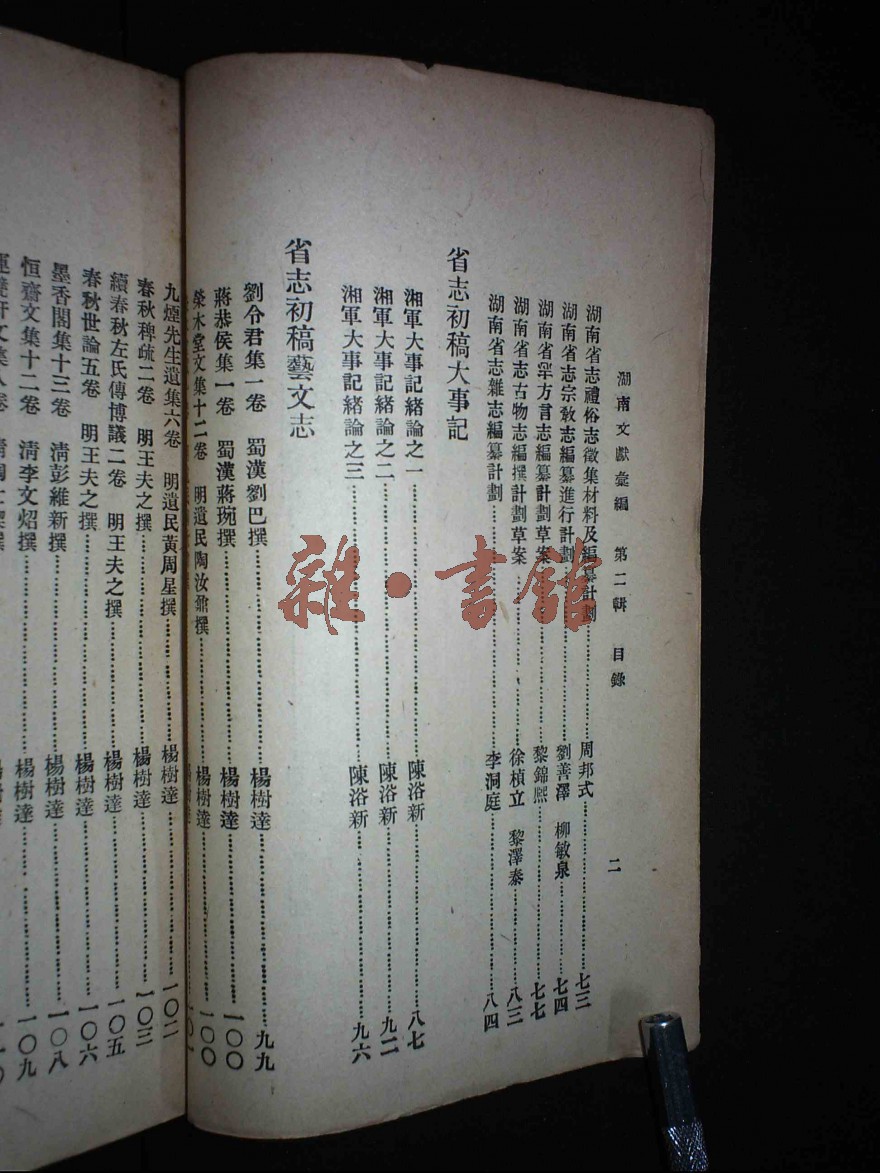 湖南文獻彙編 第二輯 目錄 二
湖南省志禮俗志徵集材料及編纂計劃……周邦式……七三
湖南省志宗教志編纂進行計劃……劉善澤 柳敏泉……七四
湖南省志方言志編纂計劃草案……黎錦熙……七七
湖南省志古物志編撰計劃草案……徐楨立 黎澤泰……八三
湖南省志雜志編纂計劃……李洞庭……八四
省志初稿大事記
湘軍大事記緒論之一……陳浴新……八七
湘軍大事記緒論之二……陳浴新……九二
湘軍大事記緒論之三……陳浴新……九六
省志初稿藝文志
劉令君集一卷 蜀漢劉巴撰……楊樹達……九九
蔣恭侯集一卷 蜀漢蔣琬撰……楊樹達……一〇〇
榮木堂文集十二卷 明遺民陶汝鼐撰……楊樹達……一〇〇
九煙先生遺集六卷 明遺民黃周星撰……楊樹達……一〇二
春秋稗疏二卷 明王夫之撰……楊樹達……一〇三
續春秋左氏傳博議二卷 明王夫之撰……楊樹達……一〇五
春秋世論五卷 明王夫之撰……楊樹達……一〇六
墨香閣集十三卷 清彭維新撰……楊樹達……一〇八
恒齋文集十二卷 清李文炤撰……楊樹達……一〇九
文集八卷
雜·書館